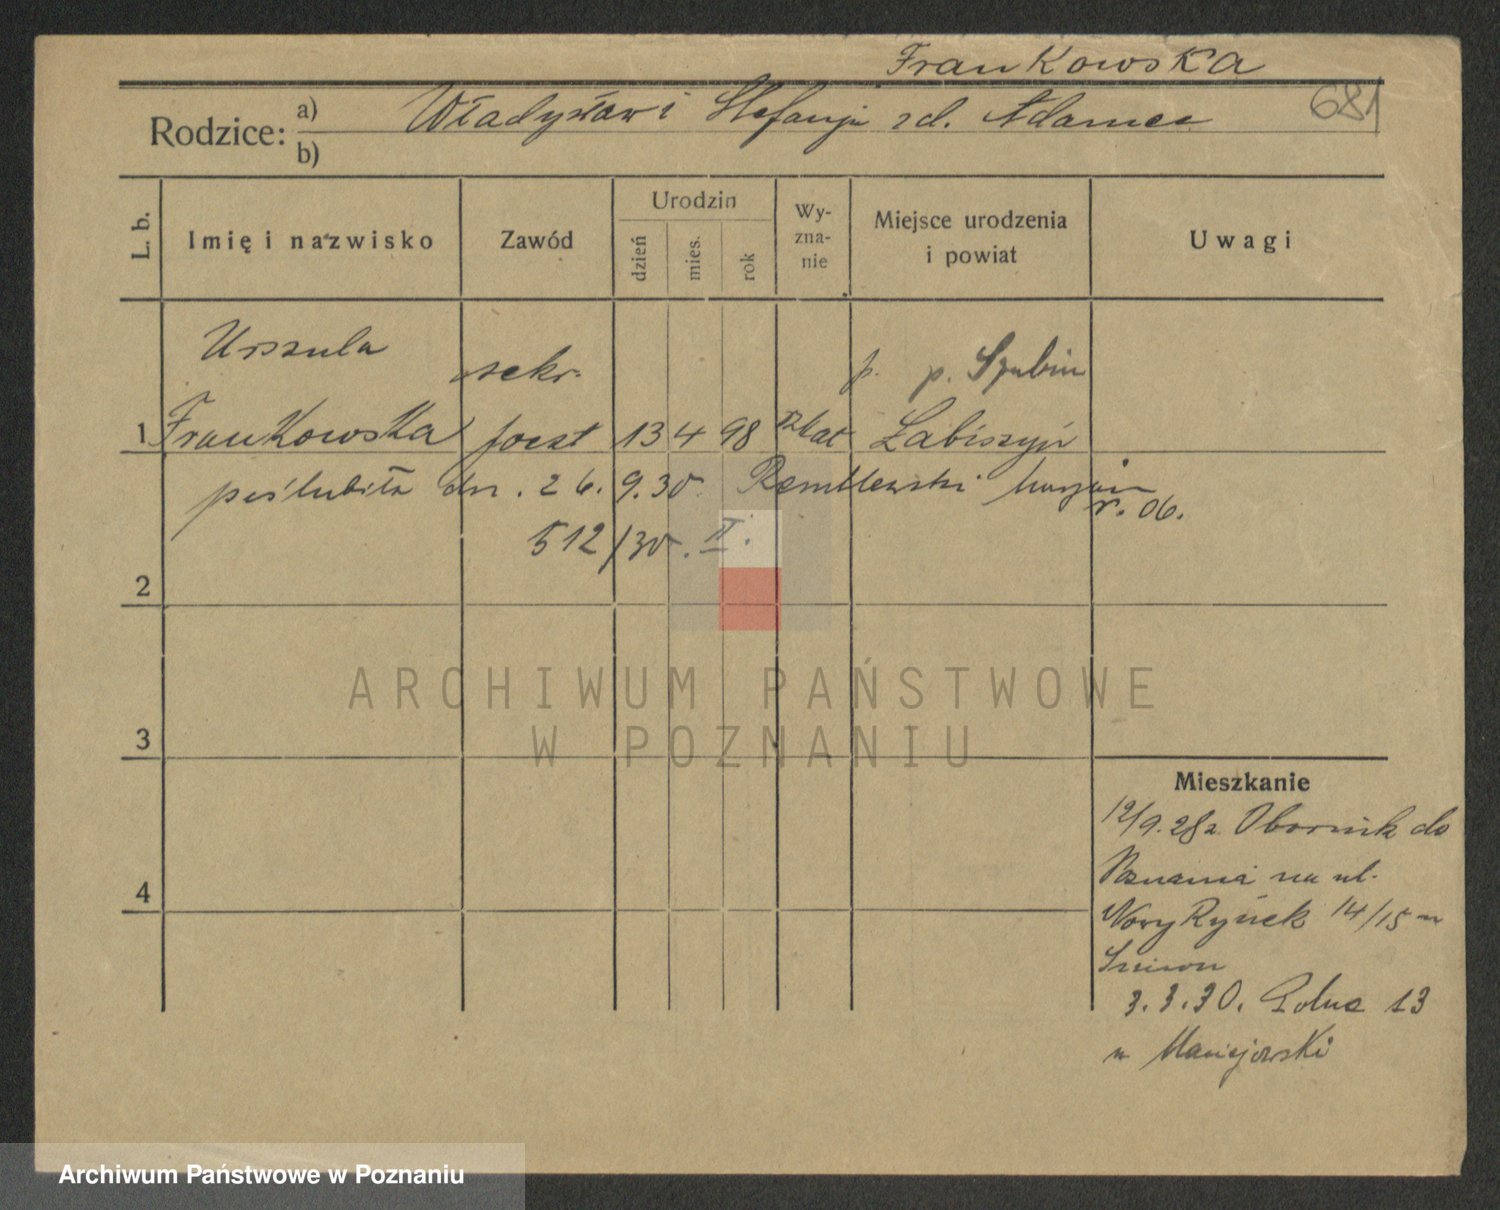 Frankowska
681
Rodzice: a) Władysław i Stefanja zd. Adamee
b)
L. b. Imię i nazwisko Zawód Urodzin dzień mies. rok Wy-zna-nie Miejsce urodzenia i powiat Uwagi
Urszula sekr. p. p. Szubin
1 Frankowska poczt 13 4 98 kat Łabiszyń
poślubiła dn. 26. 9.30. Marjan
r. 06.
512/30. II.
2
ARCHIWUM PAŃSTWOWE
W POZNANIU
3
Mieszkanie
12/9.28 z Obornik do
4
Poznania na ul.
Nowy Rynek 14/15 u
3.3.30. Polna 13
u Maciejewski
Archiwum Państwowe w Poznaniu